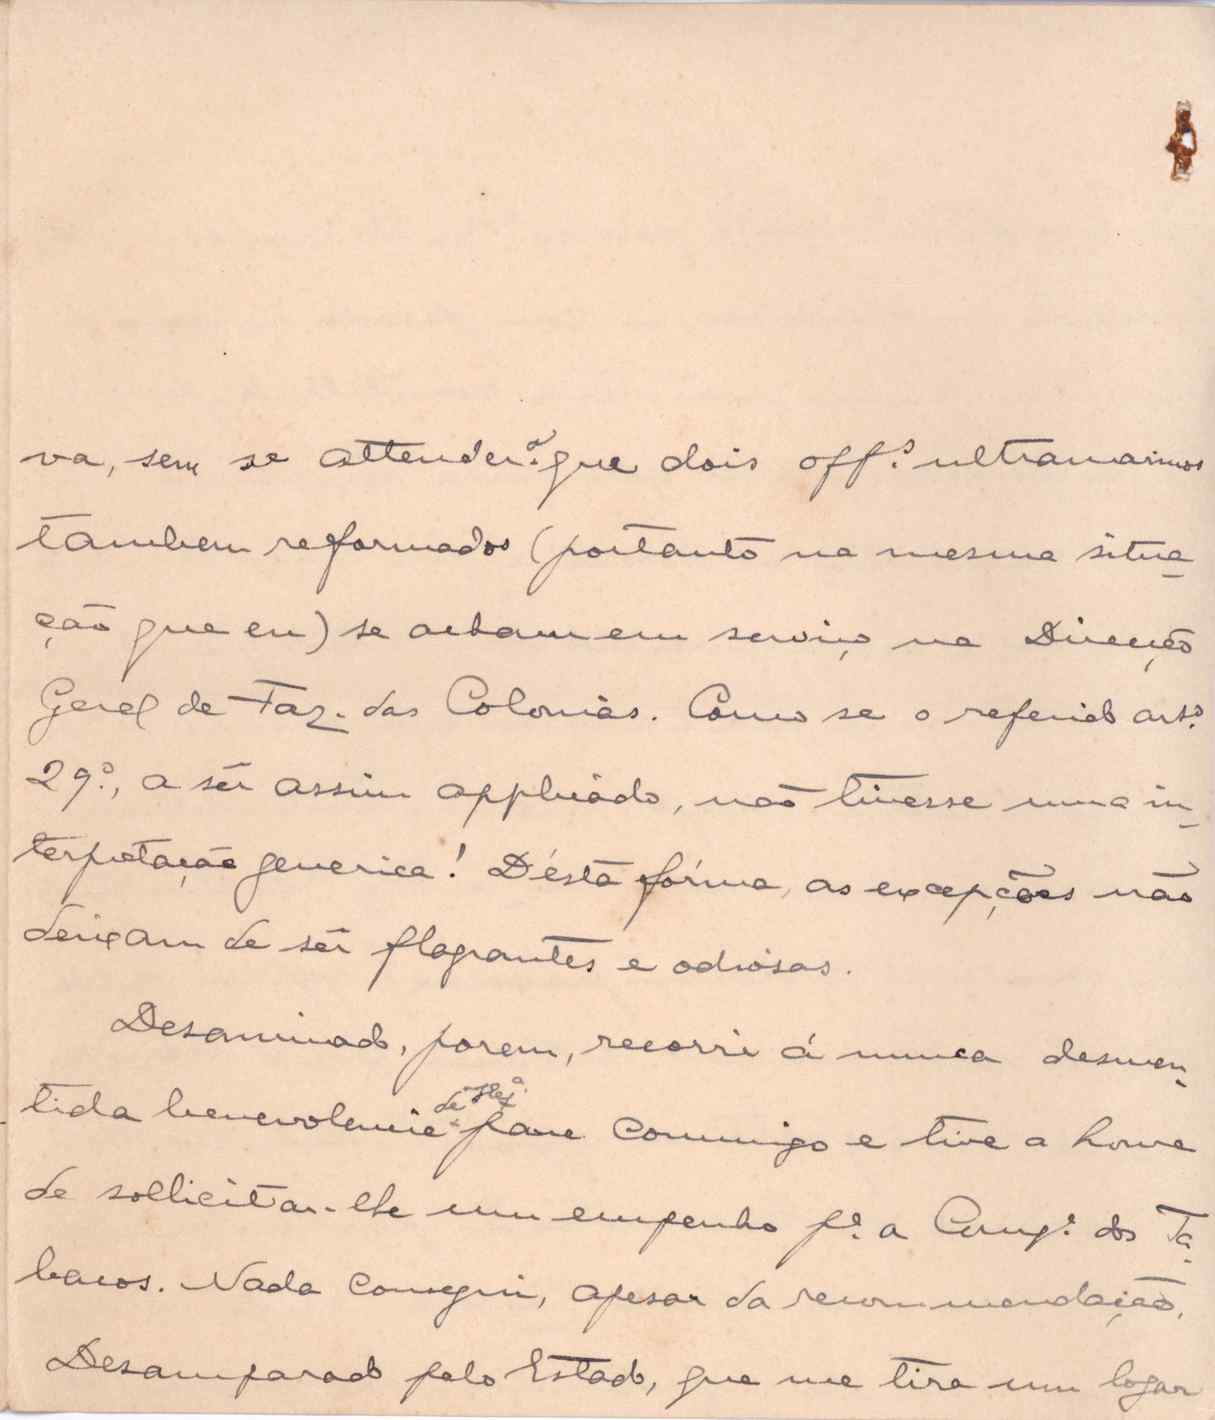 va, sem se attender a que dois off.s ultramarinos
tambem reformados (portanto na mesma situa-
ção que eu) se acham em serviço na Direcção
Geral de Faz. das Colonias. Como se o referido art.o
29.o, a sêr assim applicado, não tivesse uma in-
terpretação generica! D'ésta fórma, as excepções não
deixam de sêr flagrantes e odiósas.
Desanimado, porem, recorri á nunca desmen-
tida benevolencia de V. Ex.a para commigo e tive a honra
de sollicitar-lhe um empenho p.a a Comp.a dos Ta-
bacos. Nada consegui, apesar da recommendação.
Desamparado pelo Estado, que me tira um logar